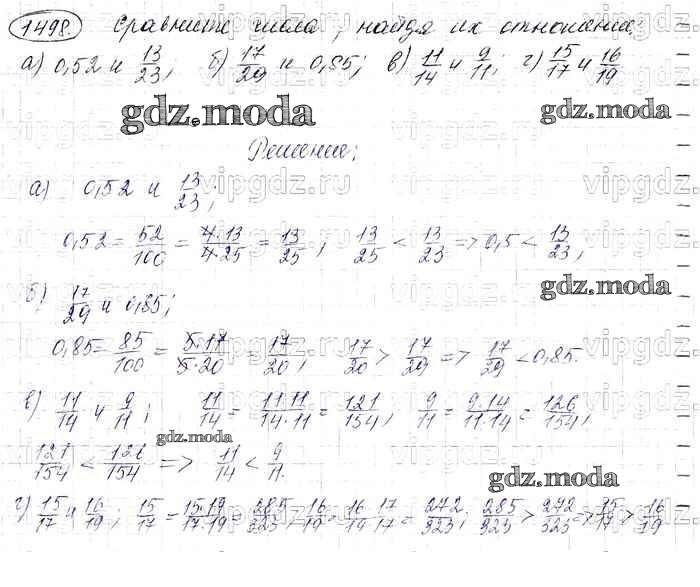 1498. Сравните числа, найдя их отношение:
а) 0,52 и 13/23; б) 17/29 и 0,85; в) 11/14 и 9/11; г) 15/17 и 16/19
gdz.moda gdz.moda
Решение:
а) 0,52 и 13/23;
0,52 = 52/100 = 4·13/4·25 = 13/25; 13/25 < 13/23 => 0,5 < 13/23;
б) 17/29 и 0,85; gdz.moda
0,85 = 85/100 = 5·17/5·20 = 17/20; 17/20 > 17/29 => 17/29 < 0,85.
в) 11/14 и 9/11; 11/14 = 11·11/14·11 = 121/154; 9/11 = 9·14/11·14 = 126/154;
gdz.moda
121/154 < 126/154 => 11/14 < 9/11.
gdz.moda
г) 15/17 и 16/19; 15/17 = 15·19/17·19 = 285/323; 16/19 = 16·17/19·17 = 272/323; 285/323 > 272/323 => 15/17 > 16/19